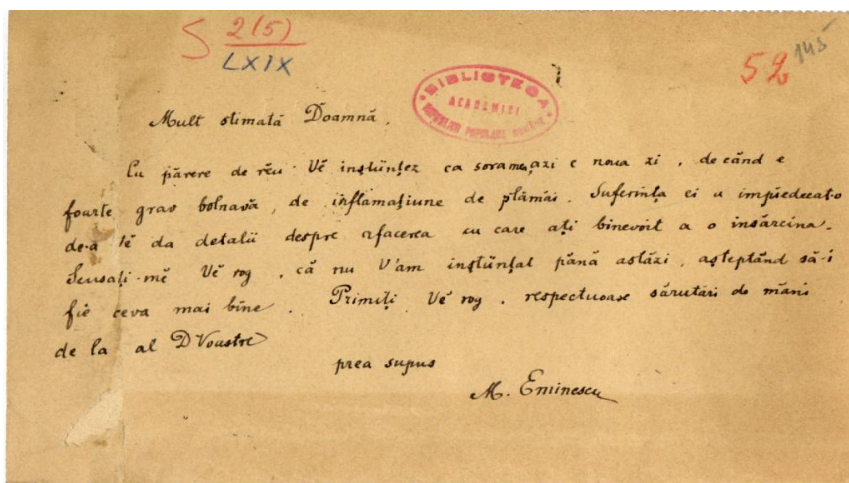 S 2(5)
LXIX
52 145
BIBLIOTECA
ACADEMIEI
REPUBLICII POPULARE ROMÂNE
Mult stimată Doamnă,
Cu părere de rĕu Vĕ înștiințez ca sora-mea, azi e noua zi, de când e
foarte grav bolnavă, de inflamațiune de plămâi. Suferința ei a împiedecat-o
de-a Vĕ da detalii despre afacerea cu care ați binevoit a o însărcina.
Scusați-mĕ Vĕ rog, că nu V'am înștiințat până astăzi, așteptând să-i
fie ceva mai bine. Primiți, Vĕ rog, respectuoase sărutări de mâni
de la al DVoastre
prea supus
M. Eminescu